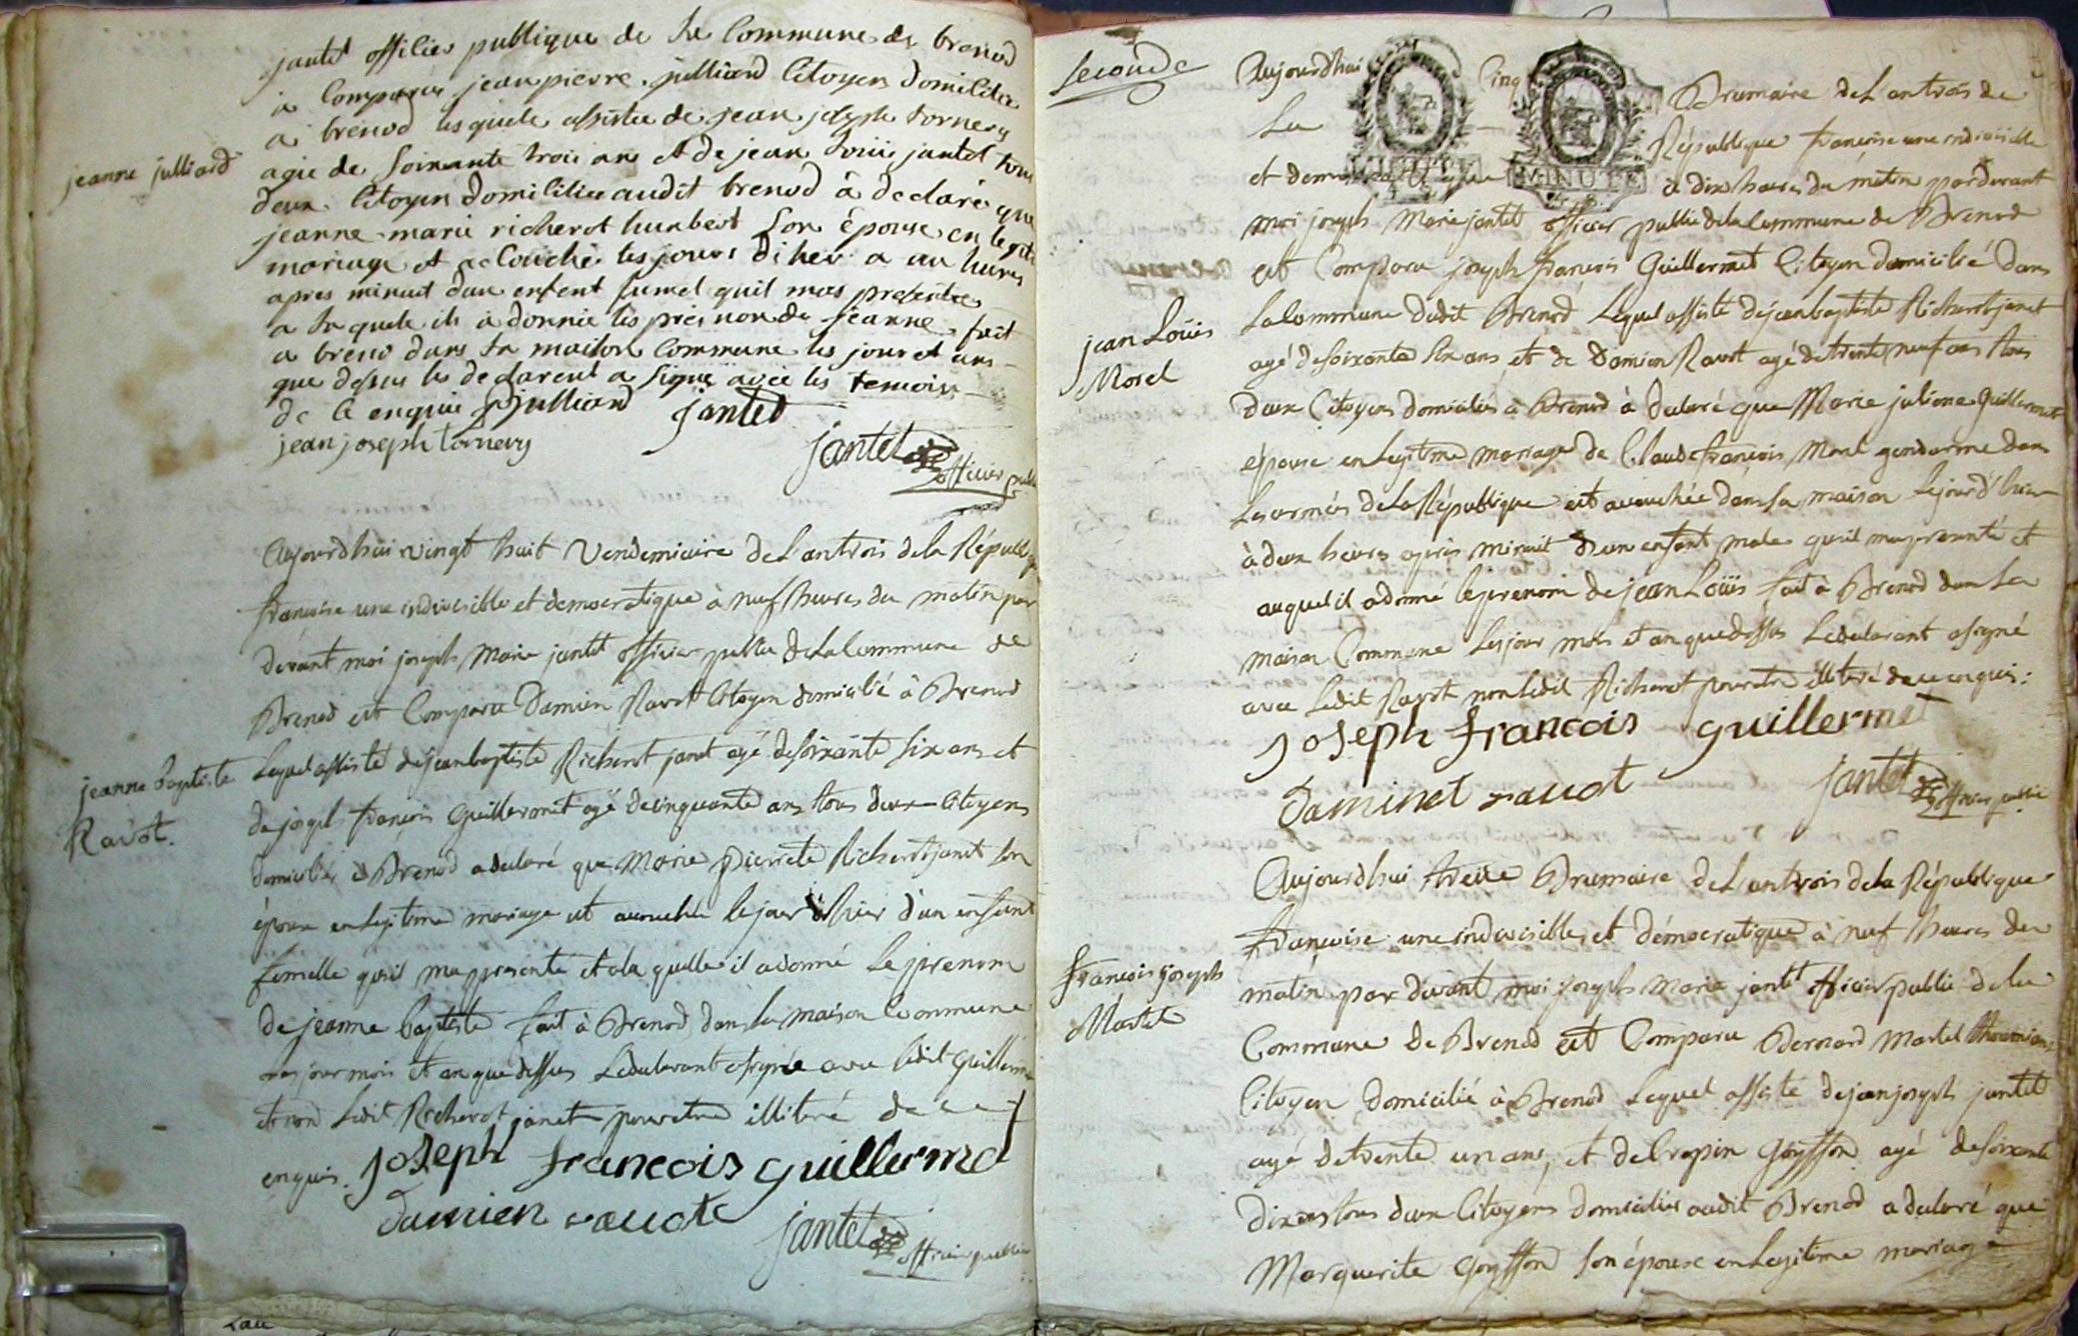 jantet offilier publique de la Commune de brenod
a Comparu jean pierre julliard Citoyen domicilie
a brenod les quele assistee de jean joseph tornery
agie de soixante trois ans et de jean jantet tous
jeanne julliard
deux Citoyen domicilies audit brenod à declaré que
jeanne marie richerot humbert son épouse en legiti
mariage et acouchée les jours diher a un hures
apres minuit dun enfent fumel quil mas presentee
a la quele ils a donnée les prénon de jeanne fait
a breno dans la maison Commune les jour et ans
que dessus les declarent a signé avec les temoins
de ce enquis Jpjulliard jantet
jean joseph tornery
jantet officier public
Aujourdhui vingt huit Vendemiaire de L'antrois de la Républiq
francoise une indivisible et democratique à neuf heures du matin par
devant moi joseph Marie jantet officier public de la Commune de
Brenod est Comparu Damien Ravot Citoyen domicilié à Brenod
jeanne baptiste
Ravot.
Lequel assisté de jean baptiste Richerot janet agé de soixante six ans et
de joseph françois Guillermet agé de cinquante ans tous deux Citoyens
domiciliés à Brenod a declaré que Marie Pierrete Richerot janet son
épouse en legitime mariage est accouchée le jour d'hier d'un enfant
femelle qu'il ma presenté et a la quelle il a donné le prenom
de jeanne baptiste fait à Brenod dans la maison Commune
les jour mois et an que dessus Le declarant a signée avec ledit Guillerme
et non Ledit Richerot janet pour etre illitéré de ce
enquis. joseph francois guillermet
damien ravote
jantet officier public
seconde
Aujourdhui Cinq Brumaire de L'antrois de
La République francoise une indivisible
et democratique à dix heures du matin par devant
MINUTE MINUTE
moi joseph Marie jantet officier public de la Commune de Brenod
est Comparu joseph françois Guillermet Citoyen domicilié dans
jean Loüis
Morel
La Commune dudit Brenod Lequel assisté de jean baptiste Richerot janet
agé de soixante six ans et de Damien Ravot agé de trente neuf ans tous
deux Citoyens domiciliés à Brenod à declaré que Marie juliene Guillermet
épouse en legitime mariage de Claude françois Morel gendarme dans
Les armées de la République est accouchée dans sa maison le jour d'hier
à deux heures après minuit d'un enfant male qu'il ma presenté et
auquel il a donné le prenom de jean Loüis fait à Brenod dans La
maison Commune les jour mois et an que dessus Le declarant a signé
avec Ledit Ravot non Ledit Richerot pour etre illiteré de ce enquis:
joseph francois guillermet
Daminet ravot
jantet officier public
Aujourdhui treize Brumaire de L'antrois de la République
francoise une indivisible et démocratique à neuf heures du
françois joseph
Martel
matin par devant moi joseph Marie jantet officier public de la
Commune de Brenod est Comparu Bernard Martel
Citoyen domicilié à Brenod Lequel assisté de jean joseph jantet
agé de trente un ans, et de Crepin Goyffon agé de soixante
dix ans tous deux Citoyens domiciliés audit Brenod a declaré que
Marguerite Goyffon son épouse en Legitime mariage